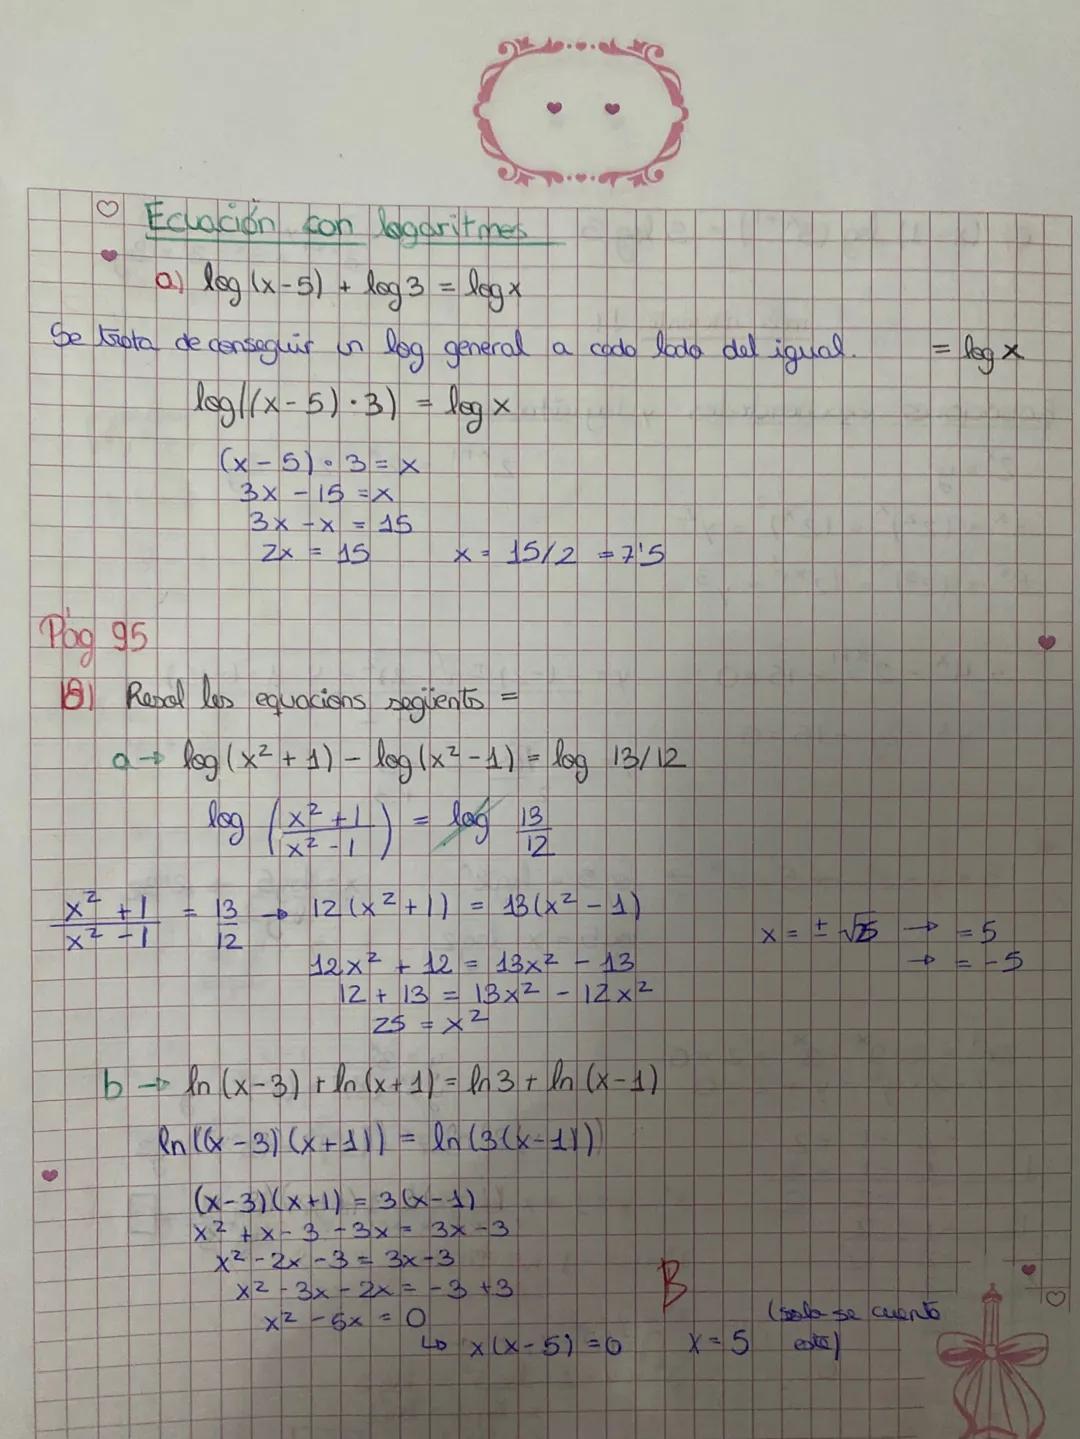 Ecuación con logaritmes
a) log(x-5) + log 3 = log x
Se trata de conseguir un log general a cada lado del igual. = log x
log((x-5)·3) = log x
(x-5)·3 = x
3x - 15 = x
3x - x = 15
2x = 15 x = 15/2 = 7'5
Pág 95
18) Resol les equacions següents =
a → log(x² + 1) - log(x² - 1) = log 13/12
log (x² + 1 / x² - 1) = log 13/12
x² + 1 / x² - 1 = 13/12 → 12(x² + 1) = 13(x² - 1)
12x² + 12 = 13x² - 13
12 + 13 = 13x² - 12x²
25 = x²
x = ± √25 → = 5
→ = -5
b → ln(x-3) + ln(x+1) = ln 3 + ln(x-1)
ln((x-3)(x+1)) = ln(3(x-1))
(x-3)(x+1) = 3(x-1)
x² + x - 3 - 3x = 3x - 3
x² - 2x - 3 = 3x - 3
x² - 3x - 2x = -3 + 3
x² - 5x = 0
↳ x(x-5) = 0 x = 5 (solo se cuenta este)
B